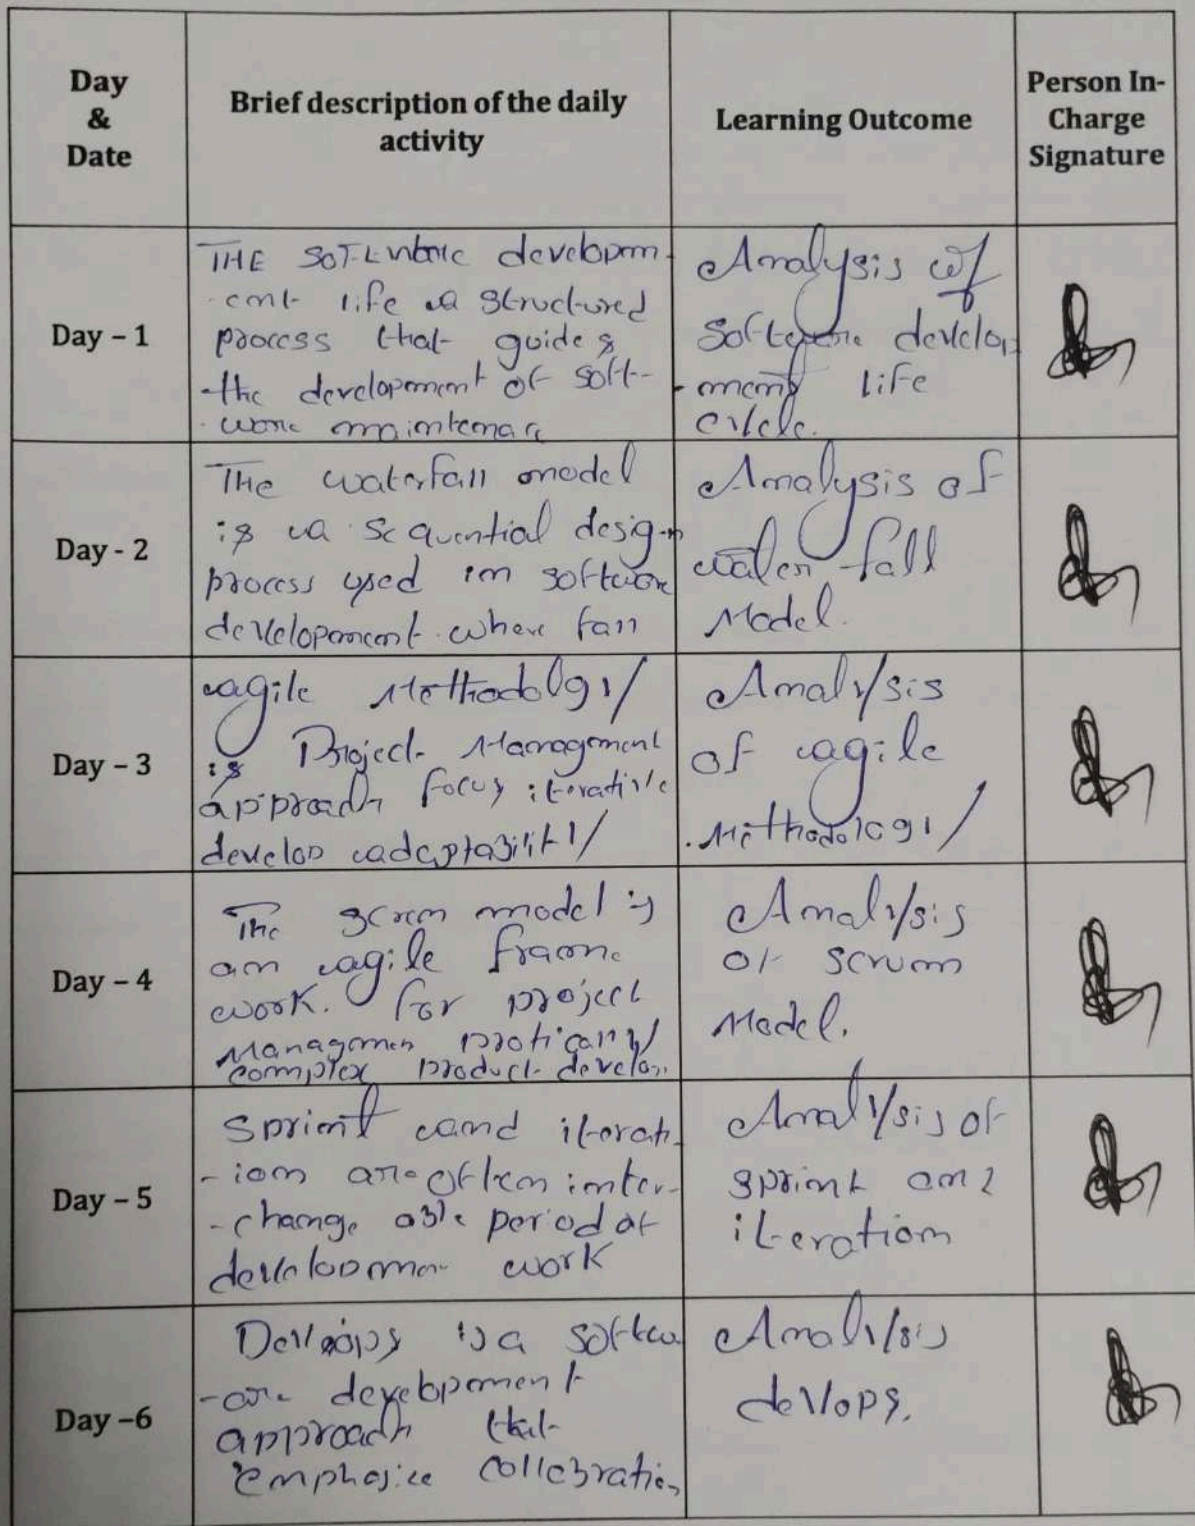 Day
&
Date
Brief description of the daily
activity
Learning Outcome
Person In-
Charge
Signature
Day – 1
THE developm
ent life a structured
process that guides
the development of soft-
ware
Analysis of
Software develop
-ment life
Day - 2
The waterfall model
is a sequential design
process used in software
development where fall
Analysis of
water fall
Model.
Day – 3
agile Methodology
is Project Management
approach focus iterative
develop adaptability
Analysis
of agile
Methodology
Day – 4
The scrum model is
an agile frame
work. for project
Managemen
complex product develop
Analysis
of scrum
Model.
Day – 5
Sprint and iterat
-ion are often inter-
-change able period of
work
Analysis of
sprint and
iteration
Day –6
Devops is a softw
-are development
approach that
emphasice
Analysis
devops.